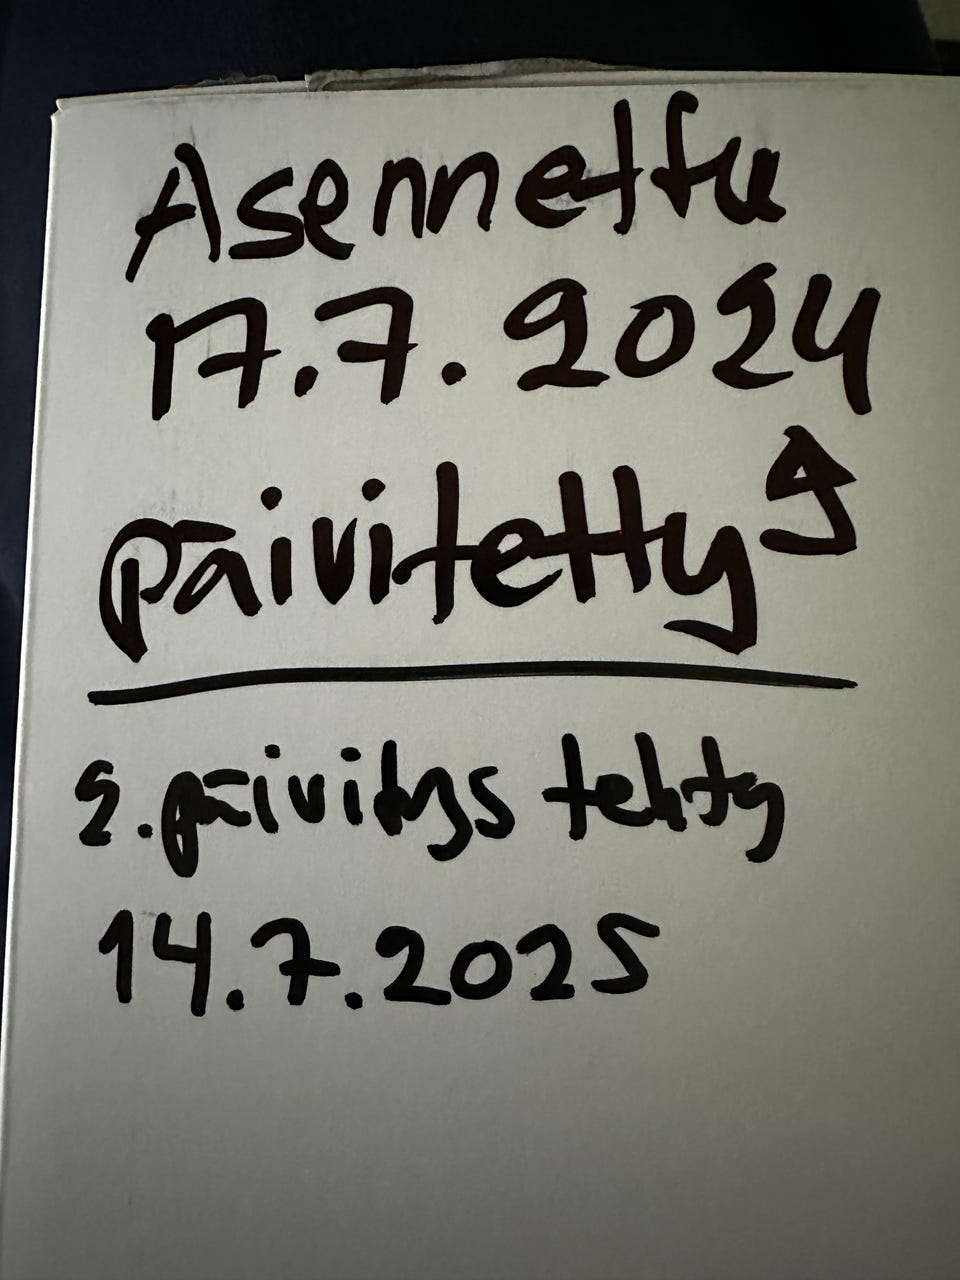 Asennettu
17.7.2024
päivitetty
2. päivitys tehty
14.7.2025